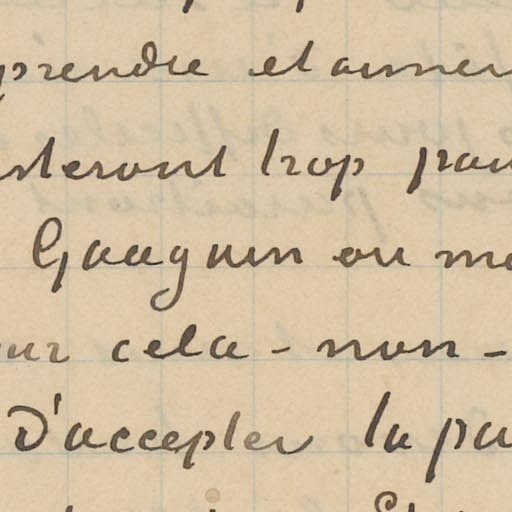 prendre et aimer
steront trop pau
Gauguin ou mo
our cela - non -
D'accepter la pa